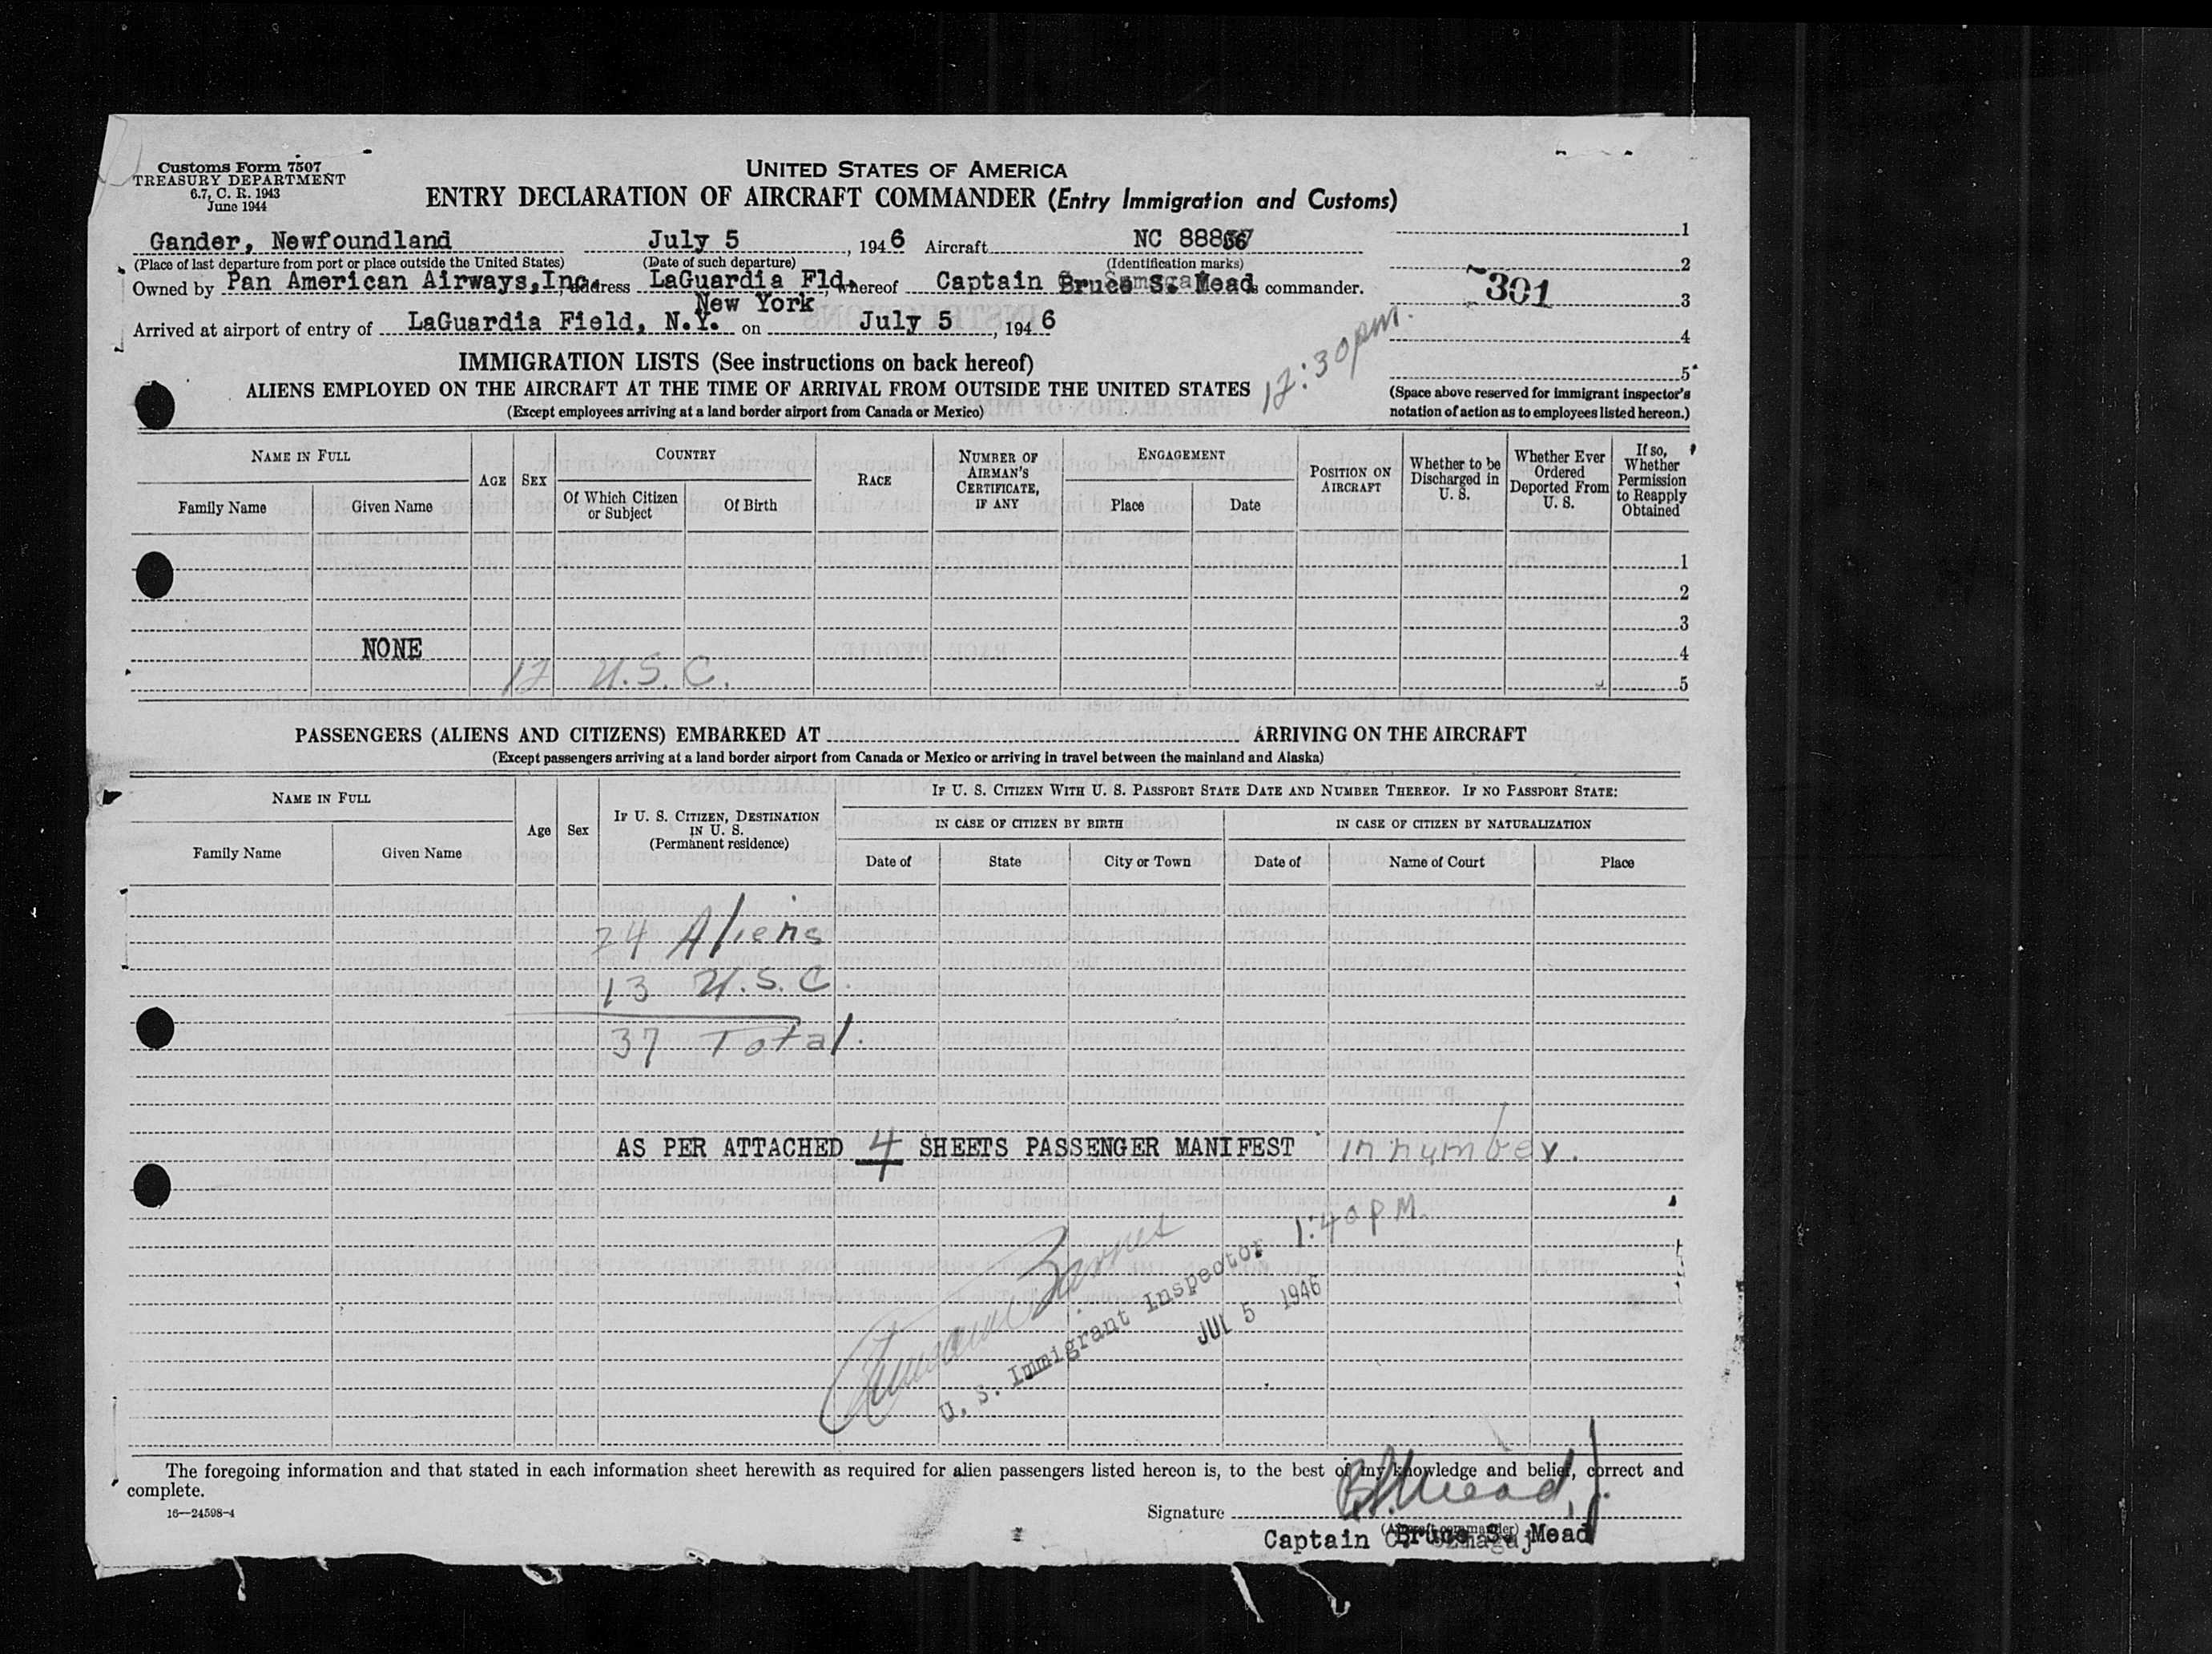 Customs Form 7507
TREASURY DEPARTMENT
6.7, C. R. 1943
June 1944
UNITED STATES OF AMERICA
ENTRY DECLARATION OF AIRCRAFT COMMANDER (Entry Immigration and Customs)
Gander, Newfoundland July 5, 1946 Aircraft NC 888
(Place of last departure from port or place outside the United States) (Date of such departure) (Identification marks)
Owned by Pan American Airways, Inc. address LaGuardia Fld. whereof Captain Bruce S. Mead is commander.
New York
Arrived at airport of entry of LaGuardia Field, N.Y. on July 5, 1946
1
2
301
3
4
5
12:30 pm.
(Space above reserved for immigrant inspector's
notation of action as to employees listed hereon.)
IMMIGRATION LISTS (See instructions on back hereof)
ALIENS EMPLOYED ON THE AIRCRAFT AT THE TIME OF ARRIVAL FROM OUTSIDE THE UNITED STATES
(Except employees arriving at a land border airport from Canada or Mexico)
NAME IN FULL
Family Name Given Name
AGE SEX
COUNTRY
Of Which Citizen or Subject Of Birth
RACE
NUMBER OF AIRMAN'S CERTIFICATE, IF ANY
ENGAGEMENT
Place Date
POSITION ON AIRCRAFT
Whether to be Discharged in U. S.
Whether Ever Ordered Deported From U. S.
If so, Whether Permission to Reapply Obtained
1
2
3
NONE 4
12 U.S.C. 5
PASSENGERS (ALIENS AND CITIZENS) EMBARKED AT ARRIVING ON THE AIRCRAFT
(Except passengers arriving at a land border airport from Canada or Mexico or arriving in travel between the mainland and Alaska)
NAME IN FULL
Family Name Given Name
Age Sex
IF U. S. CITIZEN, DESTINATION IN U. S. (Permanent residence)
IF U. S. CITIZEN WITH U. S. PASSPORT STATE DATE AND NUMBER THEREOF. IF NO PASSPORT STATE:
IN CASE OF CITIZEN BY BIRTH IN CASE OF CITIZEN BY NATURALIZATION
Date of State City or Town Date of Name of Court Place
24 Aliens
13 U.S.C.
37 Total.
AS PER ATTACHED 4 SHEETS PASSENGER MANIFEST in number.
1:40 PM.
U. S. Immigrant Inspector
JUL 5 1946
The foregoing information and that stated in each information sheet herewith as required for alien passengers listed hereon is, to the best of my knowledge and belief, correct and
complete.
16—24598-4
Signature B.S. Mead
(Aircraft commander)
Captain Bruce S. Mead